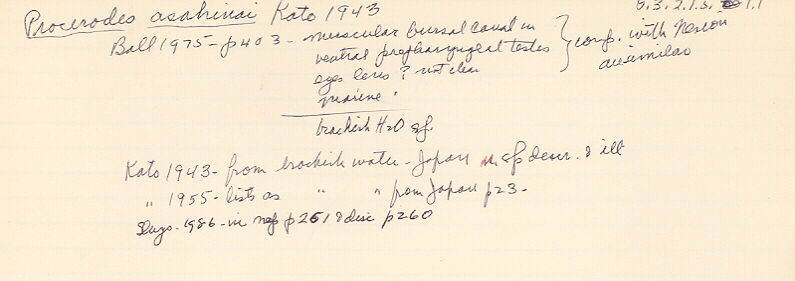 Procerodes asahinai Kato 1943
G.3.2.1.3. 1.1
Ball 1975 - p403 - muscular bursal canal in
ventral prepharyngeal testes } comp. with Nexon
eyes lens ? not clear
marine
brackish H2O sp.
Kato 1943 - from brackish water - Japan n. sp descr. & ill
" 1955 - lists as " " from Japan p23 -
Sluys - 1986 - in p261 & disc p260